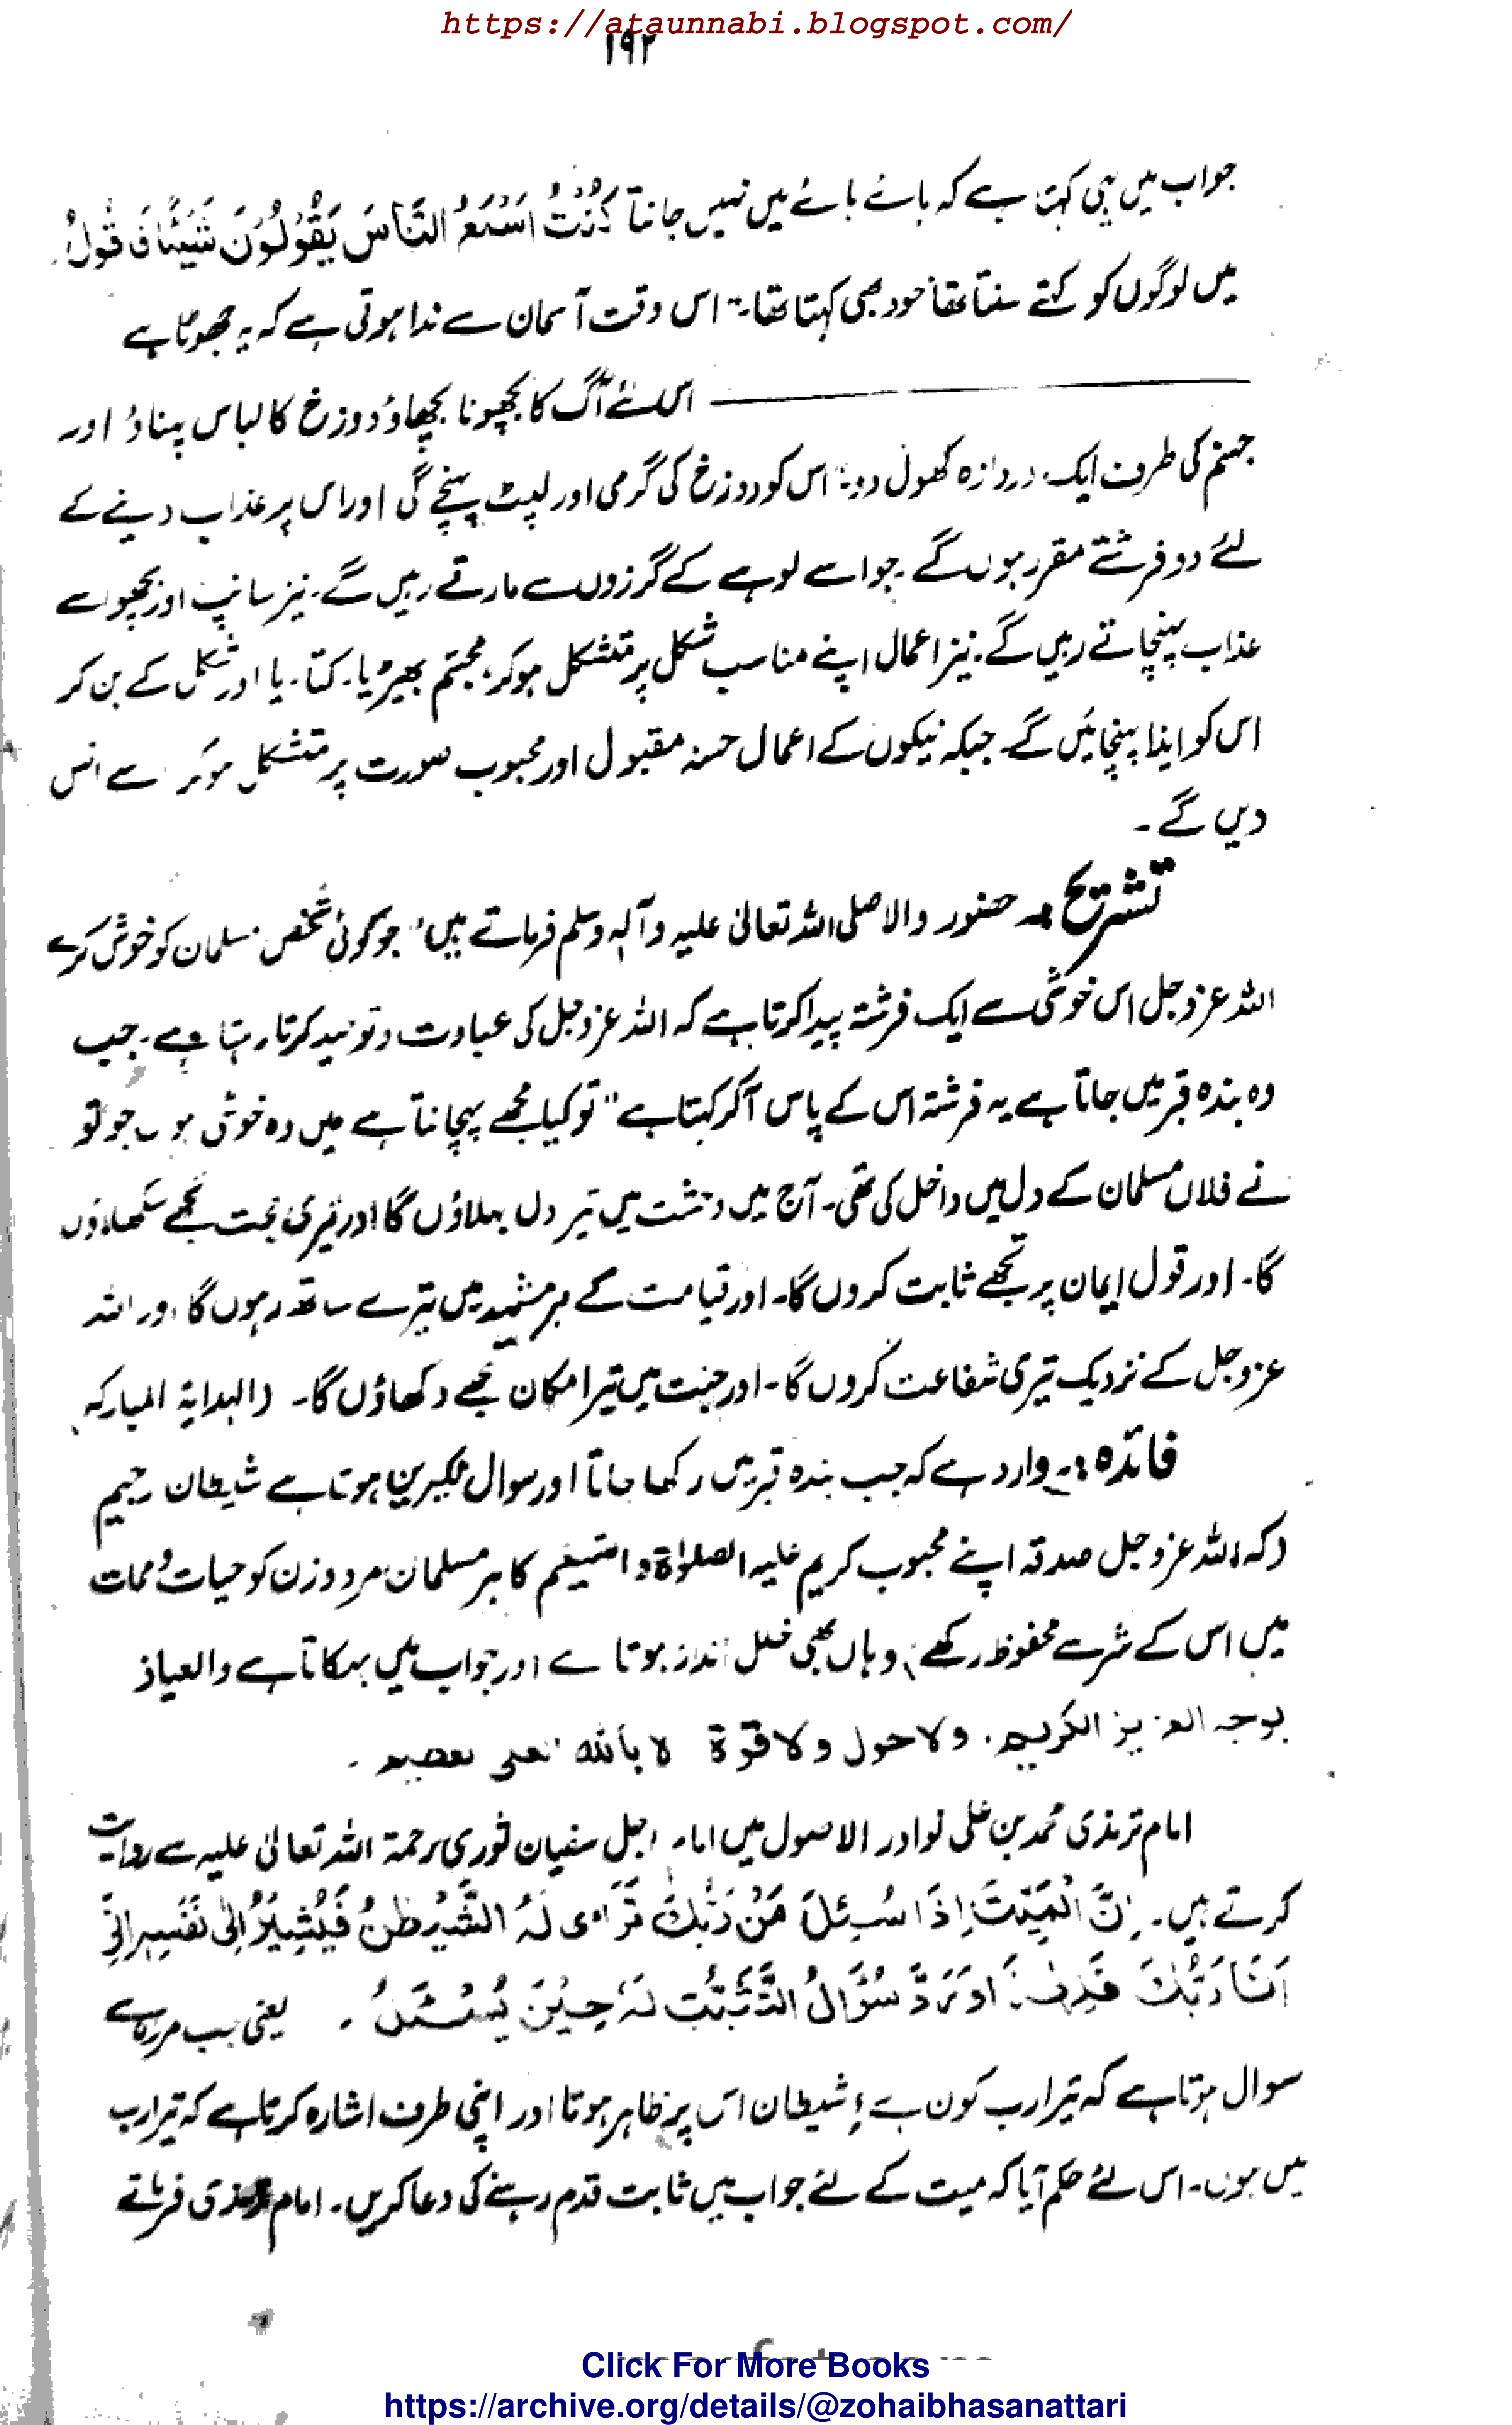 https://ataunnabi.blogspot.com/
۱۹۲
جواب میں یہی کہتا ہے کہ ہائے ہائے میں نہیں جانتا کُنْتُ اَسْمَعُ النَّاسَ یَقُوْلُوْنَ شَیْئًا فَ قُولُ
میں لوگوں کو کہتے سنتا تھا خود بھی کہتا تھا۔ اس وقت آسمان سے ندا ہوتی ہے کہ یہ جھوٹا ہے
اس لئے آگ کا بچھونا بچھاؤ دوزخ کا لباس پہناؤ اور
جہنم کی طرف ایک دروازہ کھول دو۔ اس کو دوزخ کی گرمی اور لپٹ پہنچے گی اور اس پر عذاب دینے کے
لئے دو فرشتے مقرر ہوں گے۔ جو اسے لوہے کے گرزوں سے مارتے رہیں گے۔ نیز سانپ اور بچھو اسے
عذاب پہنچاتے رہیں گے۔ نیز اعمال اپنے مناسب شکل پر متشکل ہوکر مجتم بھیڑیا۔ کتا۔ یا اور شکل کے بن کر
اس کو ایذا پہنچائیں گے۔ جبکہ نیکوں کے اعمال حسنہ مقبول اور محبوب صورت پر متشکل ہوکر سے انس
دیں گے۔
تشریح ہ حضور والا صلی اللہ تعالیٰ علیہ وآلہ وسلم فرماتے ہیں "جو کوئی شخص مسلمان کو خوش کرے
اللہ عزوجل اس خوشی سے ایک فرشتہ پیدا کرتا ہے کہ اللہ عزوجل کی عبادت وتوحید کرتا رہتا ہے۔ جب
وہ بندہ قبر میں جاتا ہے یہ فرشتہ اس کے پاس آکر کہتا ہے "تو کیا مجھے پہچانتا ہے میں وہ خوشی ہوں جو تو
نے فلاں مسلمان کے دل میں داخل کی تھی۔ آج میں وحشت میں تیر دل بہلاؤں گا اور تیری حجت تجھے سکھاؤں
گا۔ اور قول ایمان پر تجھے ثابت کروں گا۔ اور قیامت کے ہر مشہد میں تیرے ساتھ رہوں گا اور اللہ
عزوجل کے نزدیک تیری شفاعت کروں گا۔ اور جنت میں تیرا مکان تجھے دکھاؤں گا۔ (الہدایۃ المبارکہ
فائدہ :۔ وارد ہے کہ جب بندہ قبر میں رکھا جاتا اور سوال نکیرین ہوتا ہے شیطان رجیم
(کہ اللہ عزوجل صدقہ اپنے محبوب کریم علیہ الصلوٰۃ و التسلیم کا ہر مسلمان مرد و زن کو حیات و ممات
میں اس کے شر سے محفوظ رکھے) وہاں بھی خلل انداز ہوتا ہے اور جواب میں بہکاتا ہے والعیاذ
بوجہ العزیز الکریم۔ ولا حول ولا قوة لا بالله العلی العظیم۔
امام ترمذی محمد بن علی نوادر الاصول میں امام اجل سفیان ثوری رحمۃ اللہ تعالیٰ علیہ سے روایت
کرتے ہیں۔ اِنَّ الْمَیِّتَ اِذَا سُئِلَ مَنْ رَّبُّكَ تَرَاٰی لَہُ الشَّیْطٰنُ فَیُشِیْرُ اِلٰی نَفْسِہٖ اِنِّی
اَنَا رَبُّكَ سُؤَالُ التَّثَبُّتِ لَہٗ حِیْنَ یُسْئَلُ۔ یعنی جب مردے سے
سوال ہوتا ہے کہ تیرا رب کون ہے؟ شیطان اس پر ظاہر ہوتا اور اپنی طرف اشارہ کرتا ہے کہ تیرا رب
میں ہوں۔ اس لئے حکم آیا کہ میت کے لئے جواب میں ثابت قدم رہنے کی دعا کریں۔ امام ترمذی فرماتے
Click For More Books
https://archive.org/details/@zohaibhasanattari